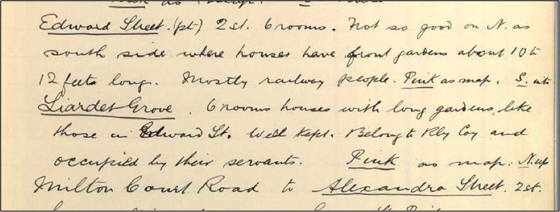 Edward Street. (pt) 2 st. 6 rooms. Not so good on N. as
south side where houses have front gardens about 10 to
12 feet long. Mostly railway people. Pink as map. S. into
Liardet Grove. 6 rooms houses with long gardens, like
those in Edward St. Well kept. Belong to Rly Coy and
occupied by their servants. Pink as map. N. up
Milton Court Road to Alexandra Street. 2 st.